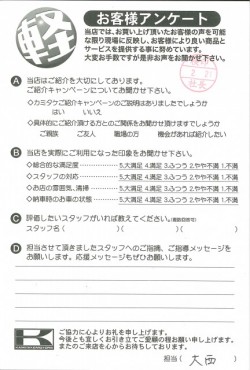 軽
お客様アンケート
当店では、お買い上げ頂いたお客様の声を可能
な限り現場に反映し、お客様により良い商品と
サービスを提供する事に努めています。
大変お手数ですが是非お声をお聞かせ下さい。
A 当店はご紹介を大切にしております。
ご紹介キャンペーンについてお聞かせ下さい。
◇カミタケご紹介キャンペーンのご説明はありましたでしょうか
はい いいえ
◇具体的にご紹介頂ける方とのご関係をお聞かせ頂けますでしょうか
ご親族 ご友人 職場の方 機会があれば紹介したい
B 当店を実際にご利用になった印象をお聞かせ下さい。
◇総合的な満足度 5.大満足 4.満足 3.ふつう 2.やや不満 1.不満
◇スタッフの対応 5.大満足 4.満足 3.ふつう 2.やや不満 1.不満
◇お店の雰囲気、清掃 5.大満足 4.満足 3.ふつう 2.やや不満 1.不満
◇納車時のお車の状態 5.大満足 4.満足 3.ふつう 2.やや不満 1.不満
C 評価したいスタッフがいれば教えてください。(複数回答可)
スタッフ名( )( )( )
D 担当させて頂きましたスタッフへのご指摘、ご指導メッセージを
お願いします。応援メッセージもぜひお願いします。
K
ご協力に心よりお礼を申し上げます。
今後とも宜しくお引き立てご愛顧の程お願い申し上げます。
またのご来店を心からお待ちしております。
担当( 大西 )